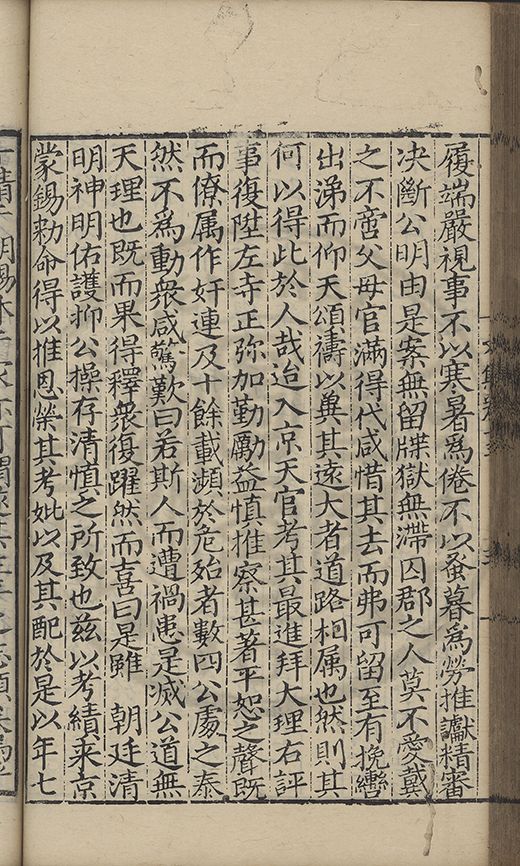 履端嚴視事不以寒暑爲倦不以蚤暮爲勞推讞精審
决斷公明由是案無留牒獄無滯囚郡之人莫不愛戴
之不啻父母官滿得代咸惜其去而弗可留至有挽轡
出涕而仰天頌禱以兾其遠大者道路相属也然則其
何以得此於人哉迨入京天官考其最進拜大理右評
事復陞左寺正弥加勤勵益慎推察甚著平恕之聲既
而僚属作奸連及十餘載瀕於危殆者數四公處之泰
然不爲動衆咸驚歎曰若斯人而遭禍患是滅公道無
天理也既而果得釋衆復躍然而喜曰是雖 朝廷清
明神明佑護抑公操存清慎之所致也兹以考績来京
蒙錫勑命得以推恩榮其考妣以及其配於是以年七